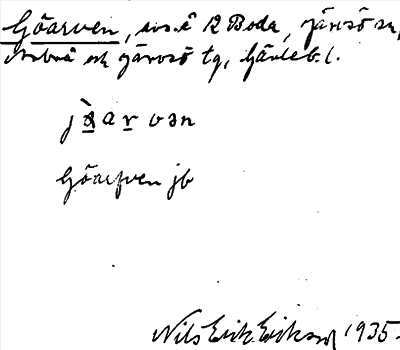 Göarven, avs. å R Boda, Järvsö sn,
Arbrå och Järvsö tg, Gävleb. l.
jöarvən
Göarfven jb
Nils Erik Eriksson 1935.